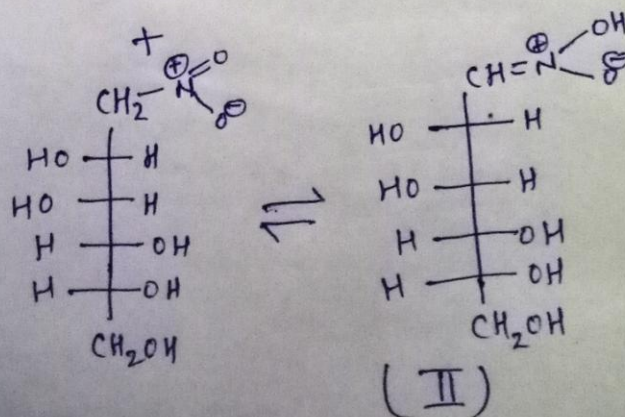 +
CH₂ — N⊕ = O
O⊖
HO H
HO H
H OH
H OH
CH₂OH
⇌
CH = N⊕ — OH
O⊖
HO H
HO H
H OH
H OH
CH₂OH
(II)